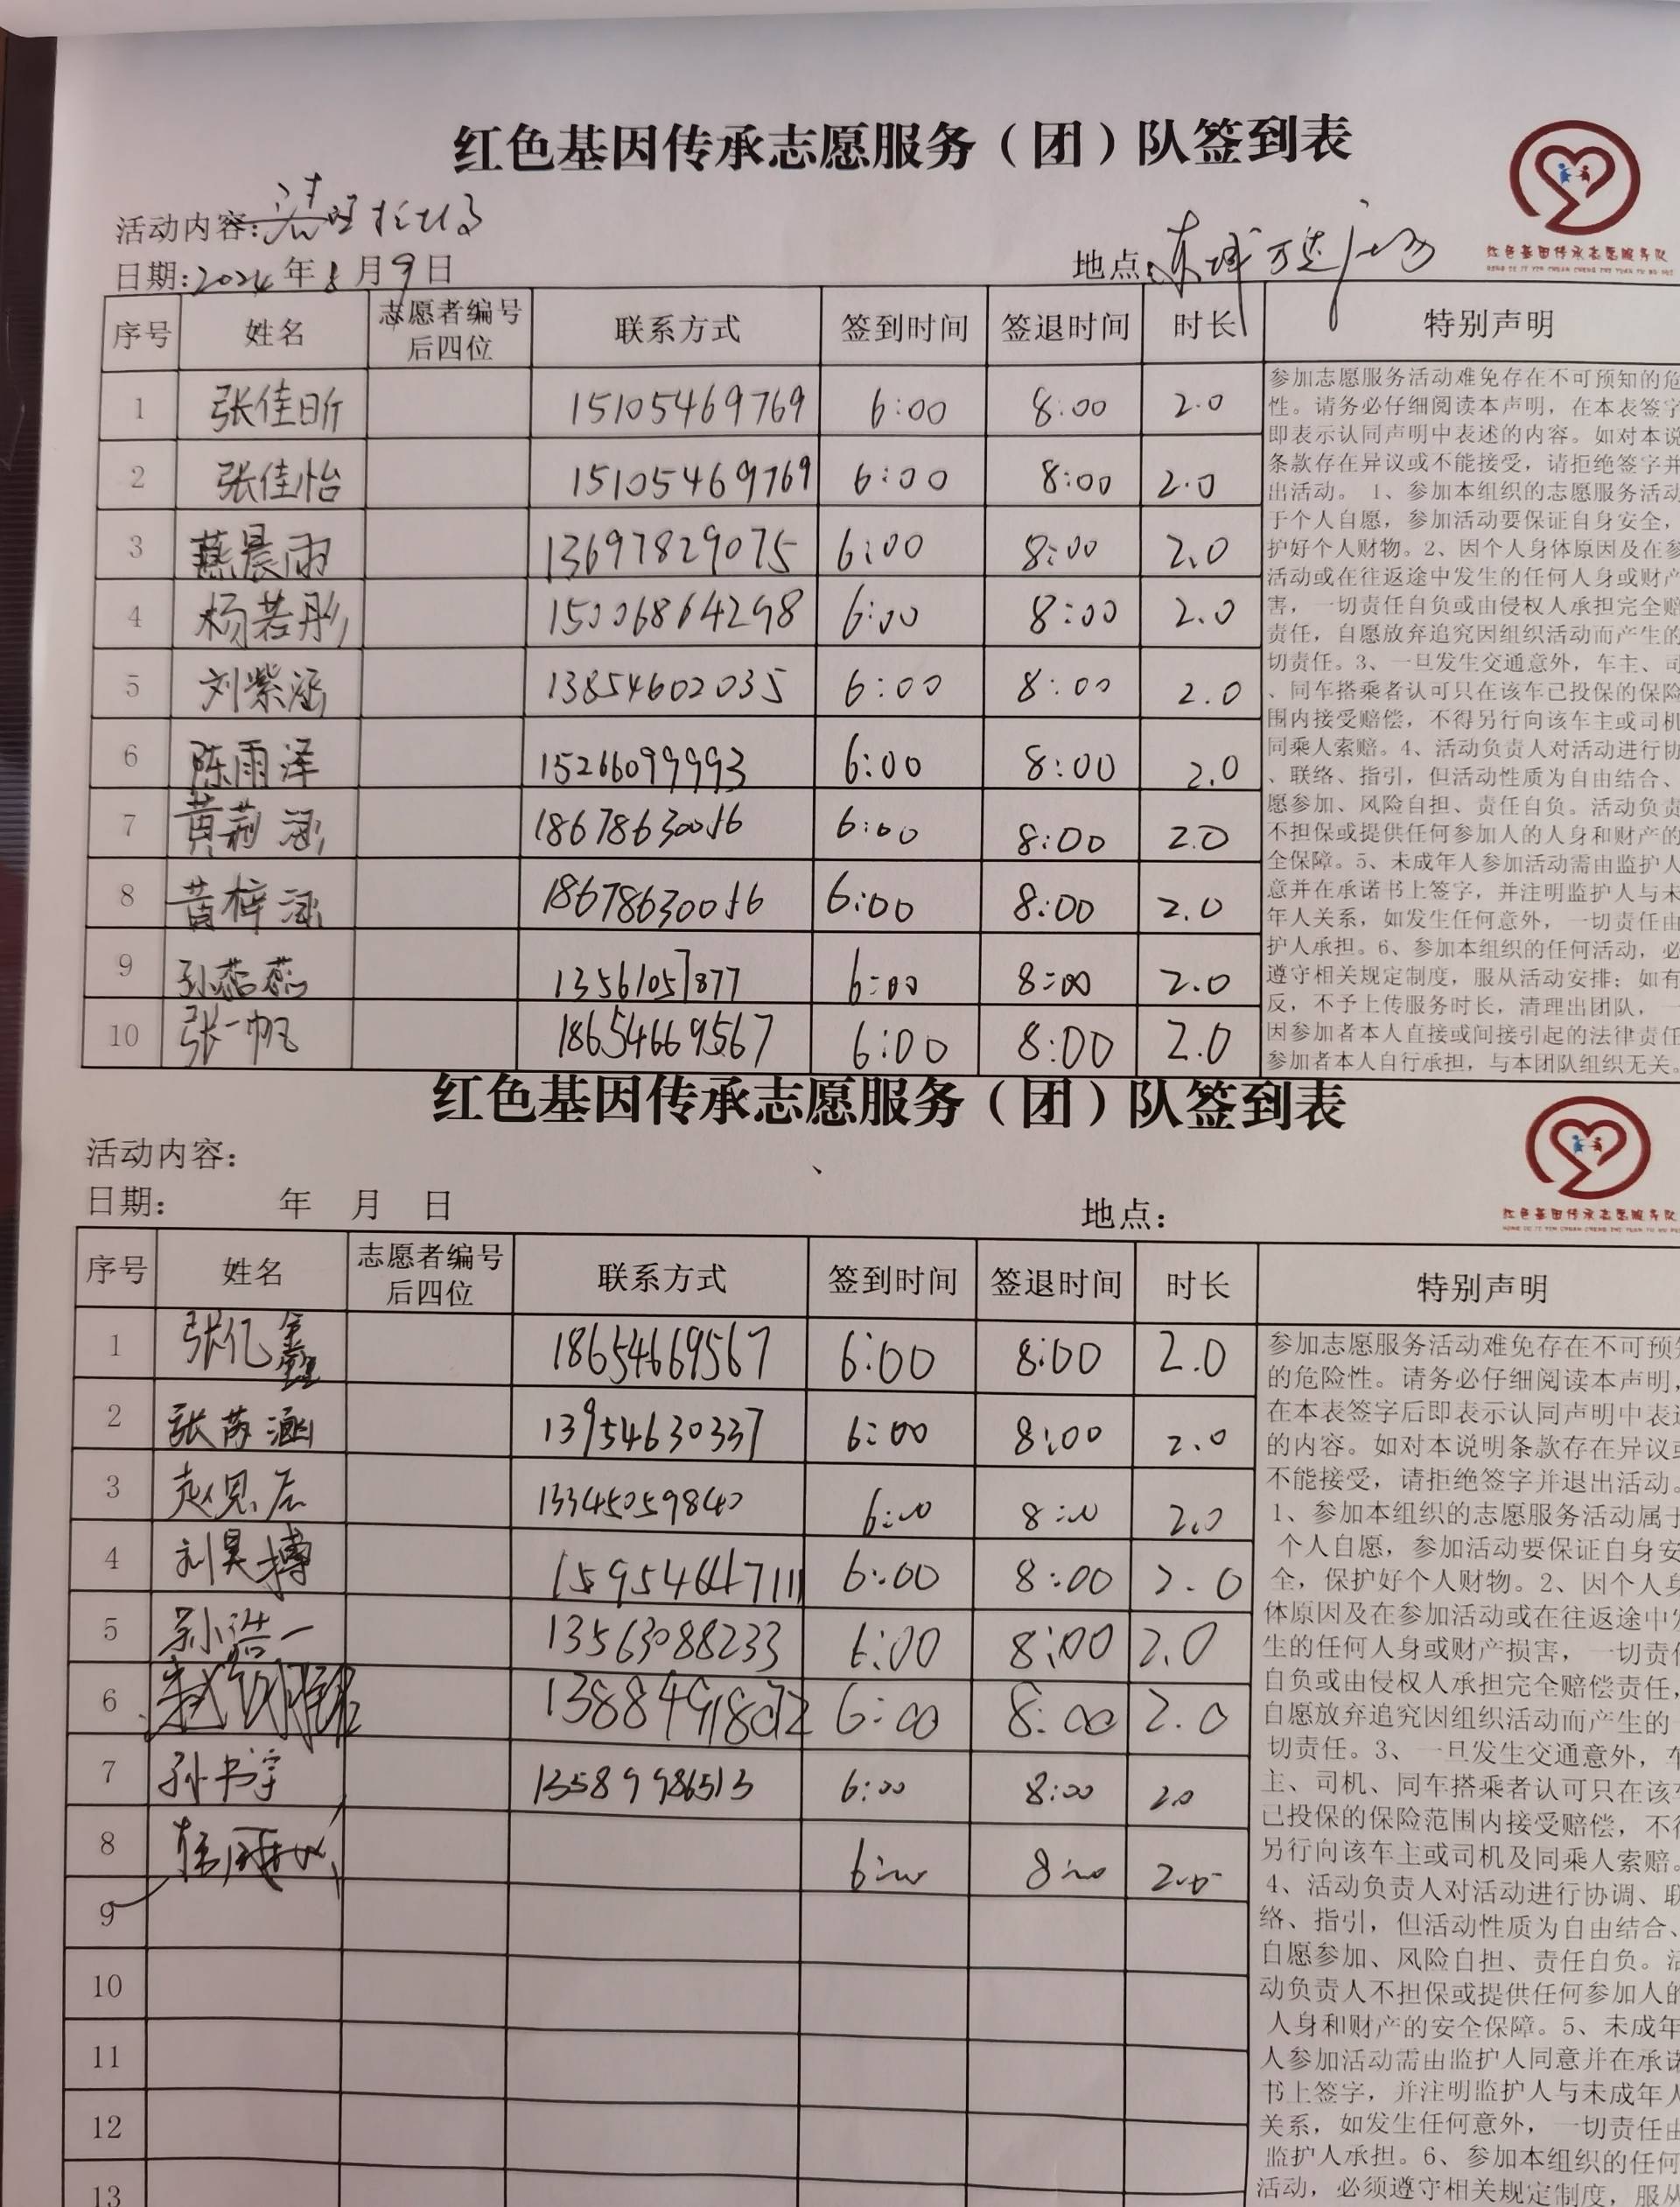 红色基因传承志愿服务（团）队签到表
活动内容:清理垃圾
日期:2024年8月9日
地点:东城万达广场
红色基因传承志愿服务队
序号 姓名 志愿者编号后四位 联系方式 签到时间 签退时间 时长 特别声明
1 张佳昕 15105469769 6:00 8:00 2.0
2 张佳怡 15105469769 6:00 8:00 2.0
3 燕晨雨 13697829075 6:00 8:00 2.0
4 杨若彤 15006864298 6:00 8:00 2.0
5 刘紫涵 13854602035 6:00 8:00 2.0
6 陈雨泽 15266099993 6:00 8:00 2.0
7 黄莉涵 18678630056 6:00 8:00 2.0
8 黄梓涵 18678630056 6:00 8:00 2.0
9 孙蕊蕊 13561057877 6:00 8:00 2.0
10 张一帆 18654669567 6:00 8:00 2.0
参加志愿服务活动难免存在不可预知的危
性。请务必仔细阅读本声明，在本表签字
即表示认同声明中表述的内容。如对本说
条款存在异议或不能接受，请拒绝签字并
出活动。 1、参加本组织的志愿服务活动
于个人自愿，参加活动要保证自身安全，
护好个人财物。2、因个人身体原因及在参
活动或在往返途中发生的任何人身或财产
害，一切责任自负或由侵权人承担完全赔
责任，自愿放弃追究因组织活动而产生的
切责任。3、一旦发生交通意外，车主、司
、同车搭乘者认可只在该车已投保的保险
围内接受赔偿，不得另行向该车主或司机
同乘人索赔。4、活动负责人对活动进行协
、联络、指引，但活动性质为自由结合、
愿参加、风险自担、责任自负。活动负责
不担保或提供任何参加人的人身和财产的
全保障。5、未成年人参加活动需由监护人
意并在承诺书上签字，并注明监护人与未
年人关系，如发生任何意外，一切责任由
护人承担。6、参加本组织的任何活动，必
遵守相关规定制度，服从活动安排；如有
反，不予上传服务时长，清理出团队，一
因参加者本人直接或间接引起的法律责任
参加者本人自行承担，与本团队组织无关。
红色基因传承志愿服务（团）队签到表
活动内容:
日期: 年 月 日
地点:
红色基因传承志愿服务队
序号 姓名 志愿者编号后四位 联系方式 签到时间 签退时间 时长 特别声明
1 张亿鑫 18654669567 6:00 8:00 2.0
2 张芮涵 13954630337 6:00 8:00 2.0
3 赵思辰 13345059840 6:00 8:00 2.0
4 刘昊搏 15954647111 6:00 8:00 2.0
5 孙浩一 13563088233 6:00 8:00 2.0
6 6:00 8:00 2.0
7 孙书宇 13589986513 6:00 8:00 2.0
8 6:00 8:00 2.0
9
10
11
12
13
参加志愿服务活动难免存在不可预知
的危险性。请务必仔细阅读本声明，
在本表签字后即表示认同声明中表述
的内容。如对本说明条款存在异议或
不能接受，请拒绝签字并退出活动。
1、参加本组织的志愿服务活动属于
个人自愿，参加活动要保证自身安
全，保护好个人财物。2、因个人身
体原因及在参加活动或在往返途中发
生的任何人身或财产损害，一切责任
自负或由侵权人承担完全赔偿责任，
自愿放弃追究因组织活动而产生的一
切责任。3、一旦发生交通意外，车
主、司机、同车搭乘者认可只在该车
已投保的保险范围内接受赔偿，不得
另行向该车主或司机及同乘人索赔。
4、活动负责人对活动进行协调、联
络、指引，但活动性质为自由结合、
自愿参加、风险自担、责任自负。活
动负责人不担保或提供任何参加人的
人身和财产的安全保障。5、未成年
人参加活动需由监护人同意并在承诺
书上签字，并注明监护人与未成年人
关系，如发生任何意外，一切责任由
监护人承担。6、参加本组织的任何
活动，必须遵守相关规定制度，服从